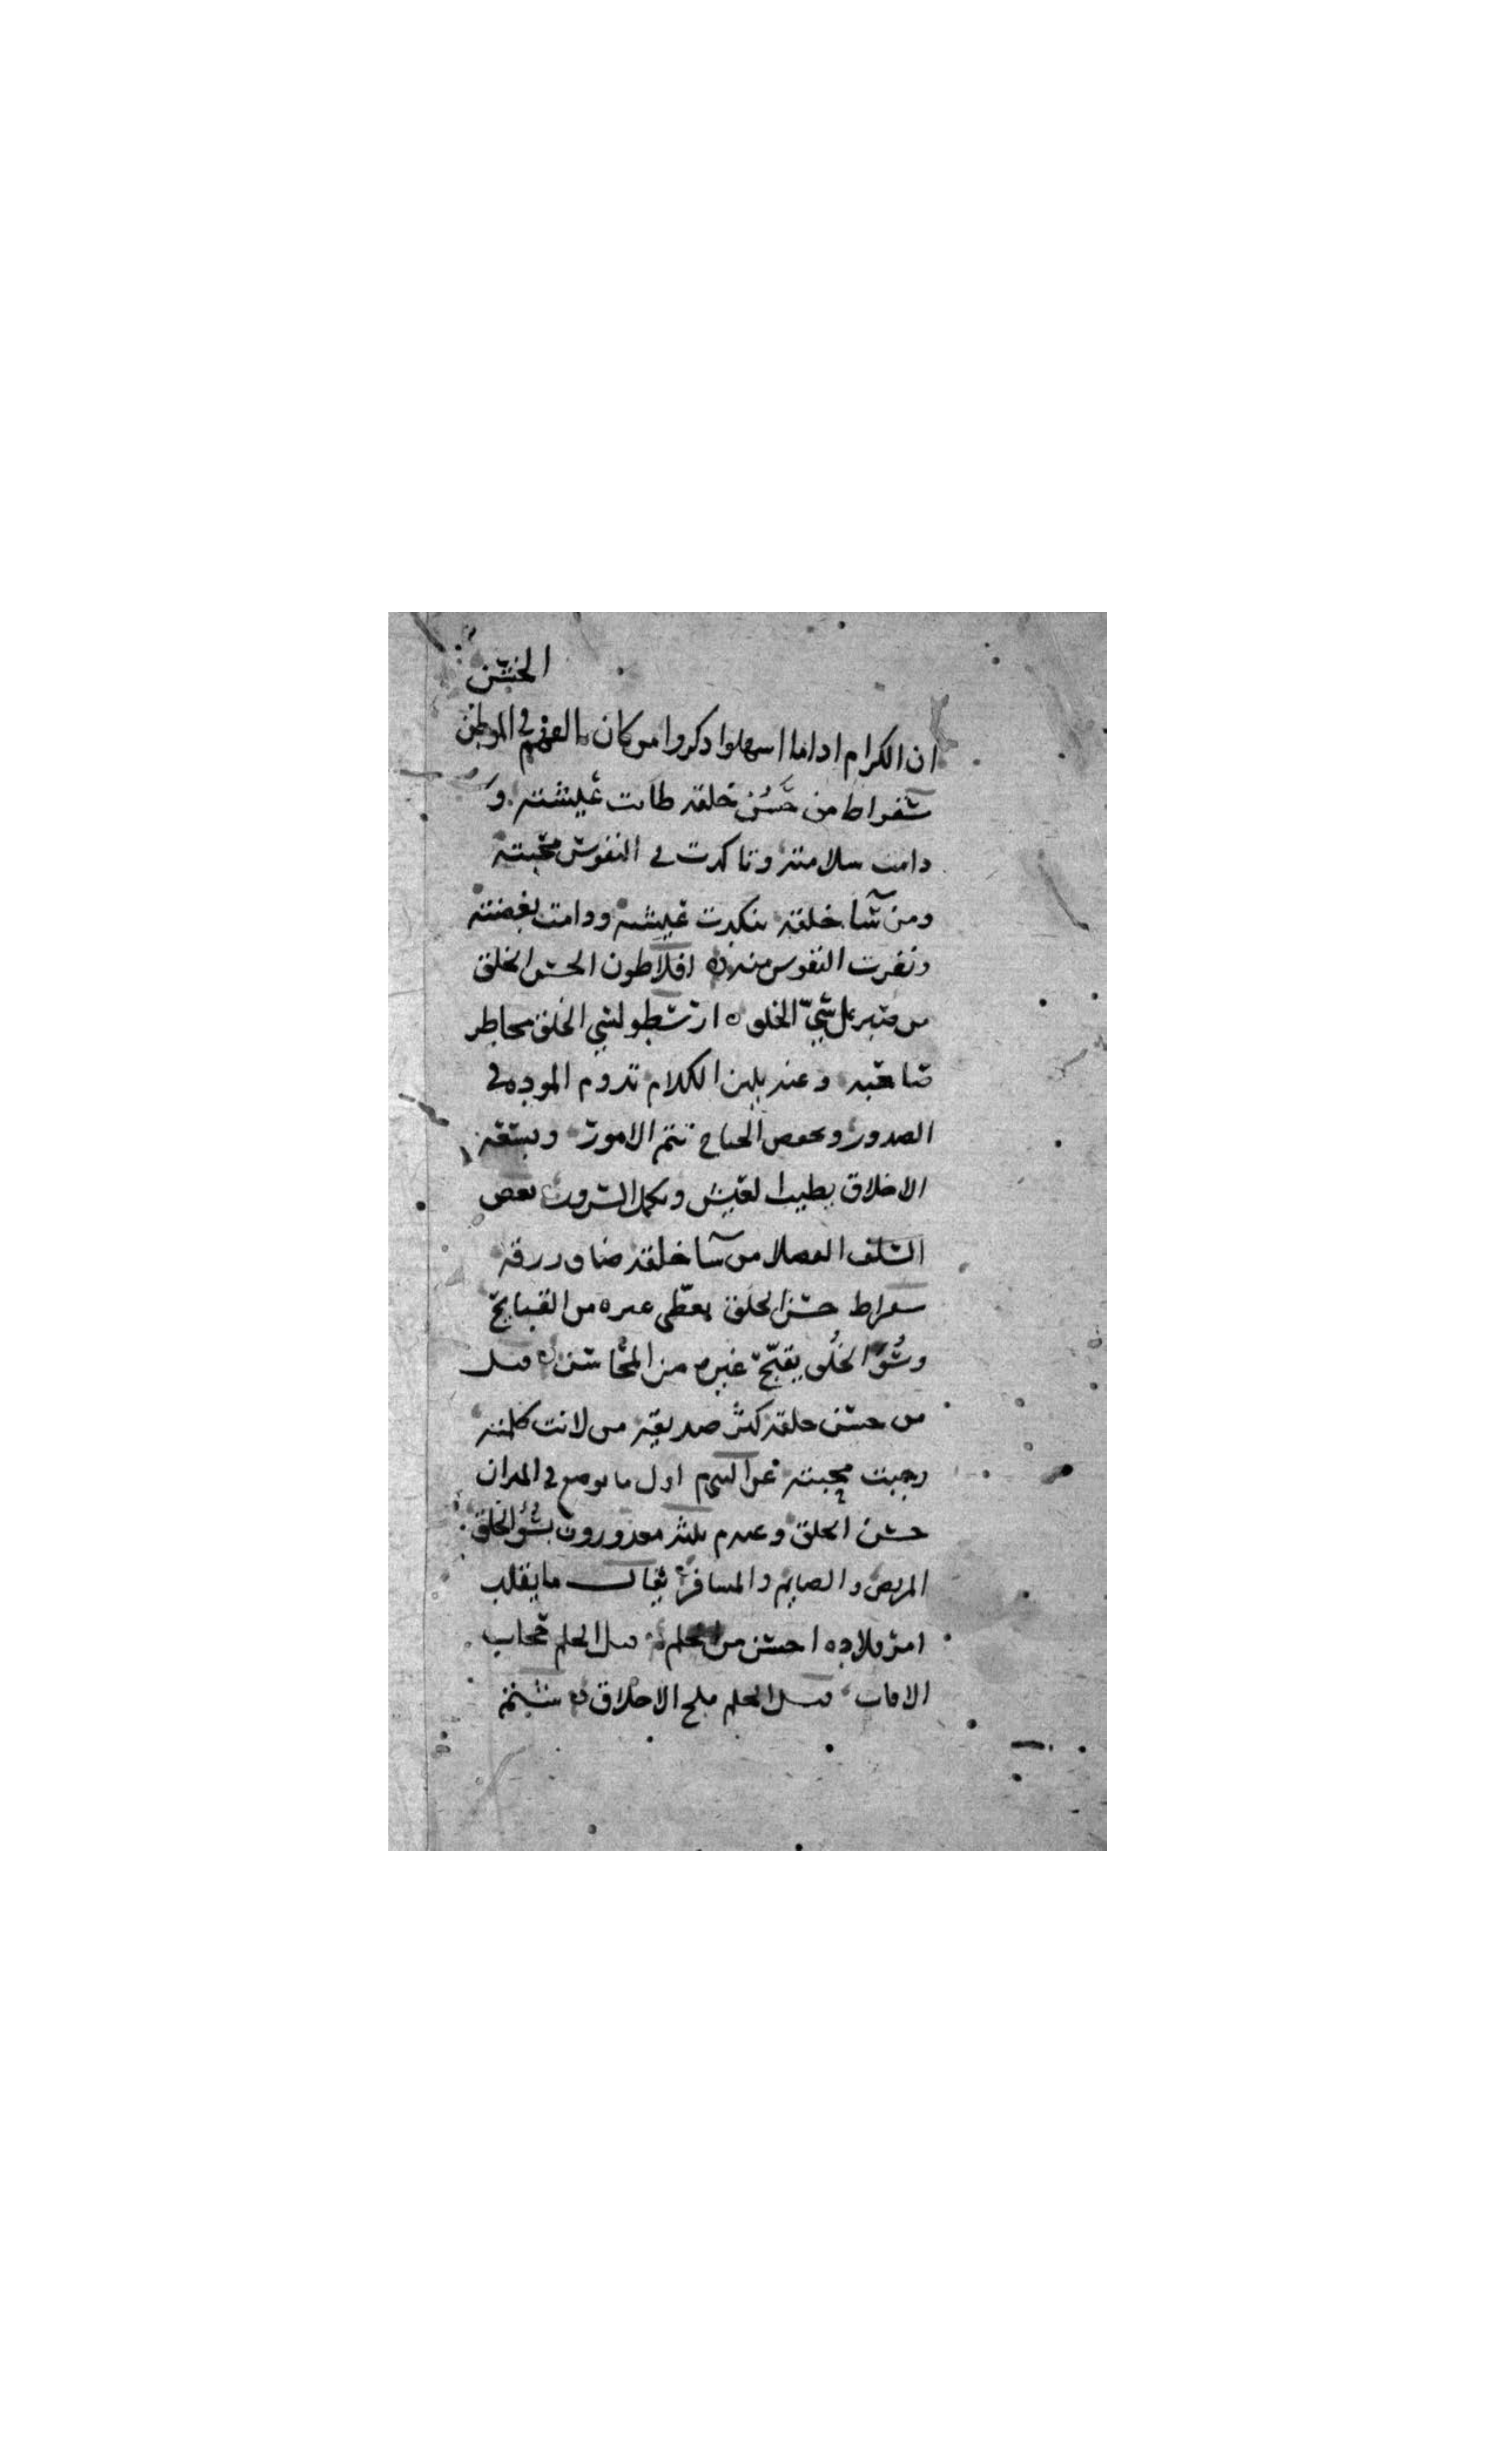 الخشن
ان الكرام اذا ما اسهلوا ذكروا من كان يالفهم في الموطن
سقراط من حَسُن خلقه طابت عيشته و
دامت سلامته وتاكدت في النفوس محبته
ومن سآ خلقه تنكدت عيشته ودامت بغضته
ونفرت النفوس منه افلاطون الحسن الخلق
من صبر على سَيّ الخلق ارسطو لسَيّ الخلق مخاطر
صاحبه وعند بلين الكلام تدوم الموده في
الصدور وبخفض الجناح تتم الامور وبسعة
الاخلاق يطيب العيش ويكمل السرور بعض
السلف الفضلا من سآ خلقه ضاق رزقه
سقراط حسن الخلق يغطّى غيره من القبايح
وسُوَ الخُلق يقبّح غيره من المحاسن قيل
من حسن خلقه كثر صديقه من لانت كلمته
وجبت محبته اول ما يوضع في الميزان
حسن الخلق وعدم ثلثه معذورون بسُو الخلق
المريض والصايم والمسافر يقال ما تقلد
امرؤ قلاده احسن من الحلم قيل الحلم حجاب
الافات قيل الحلم ملح الاخلاق